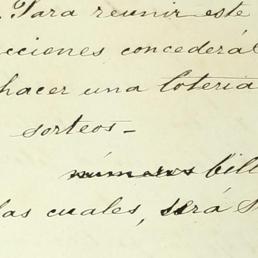 . Para reunir este
cciones concederá
hacer una loteria
sorteos—
números bill
las cuales, será s